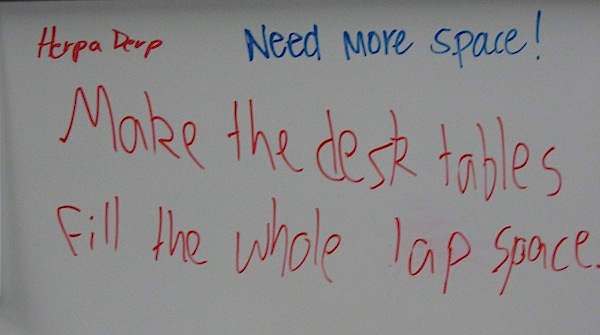 Herpa Derp Need More space!
Make the desk tables
Fill the whole lap space.